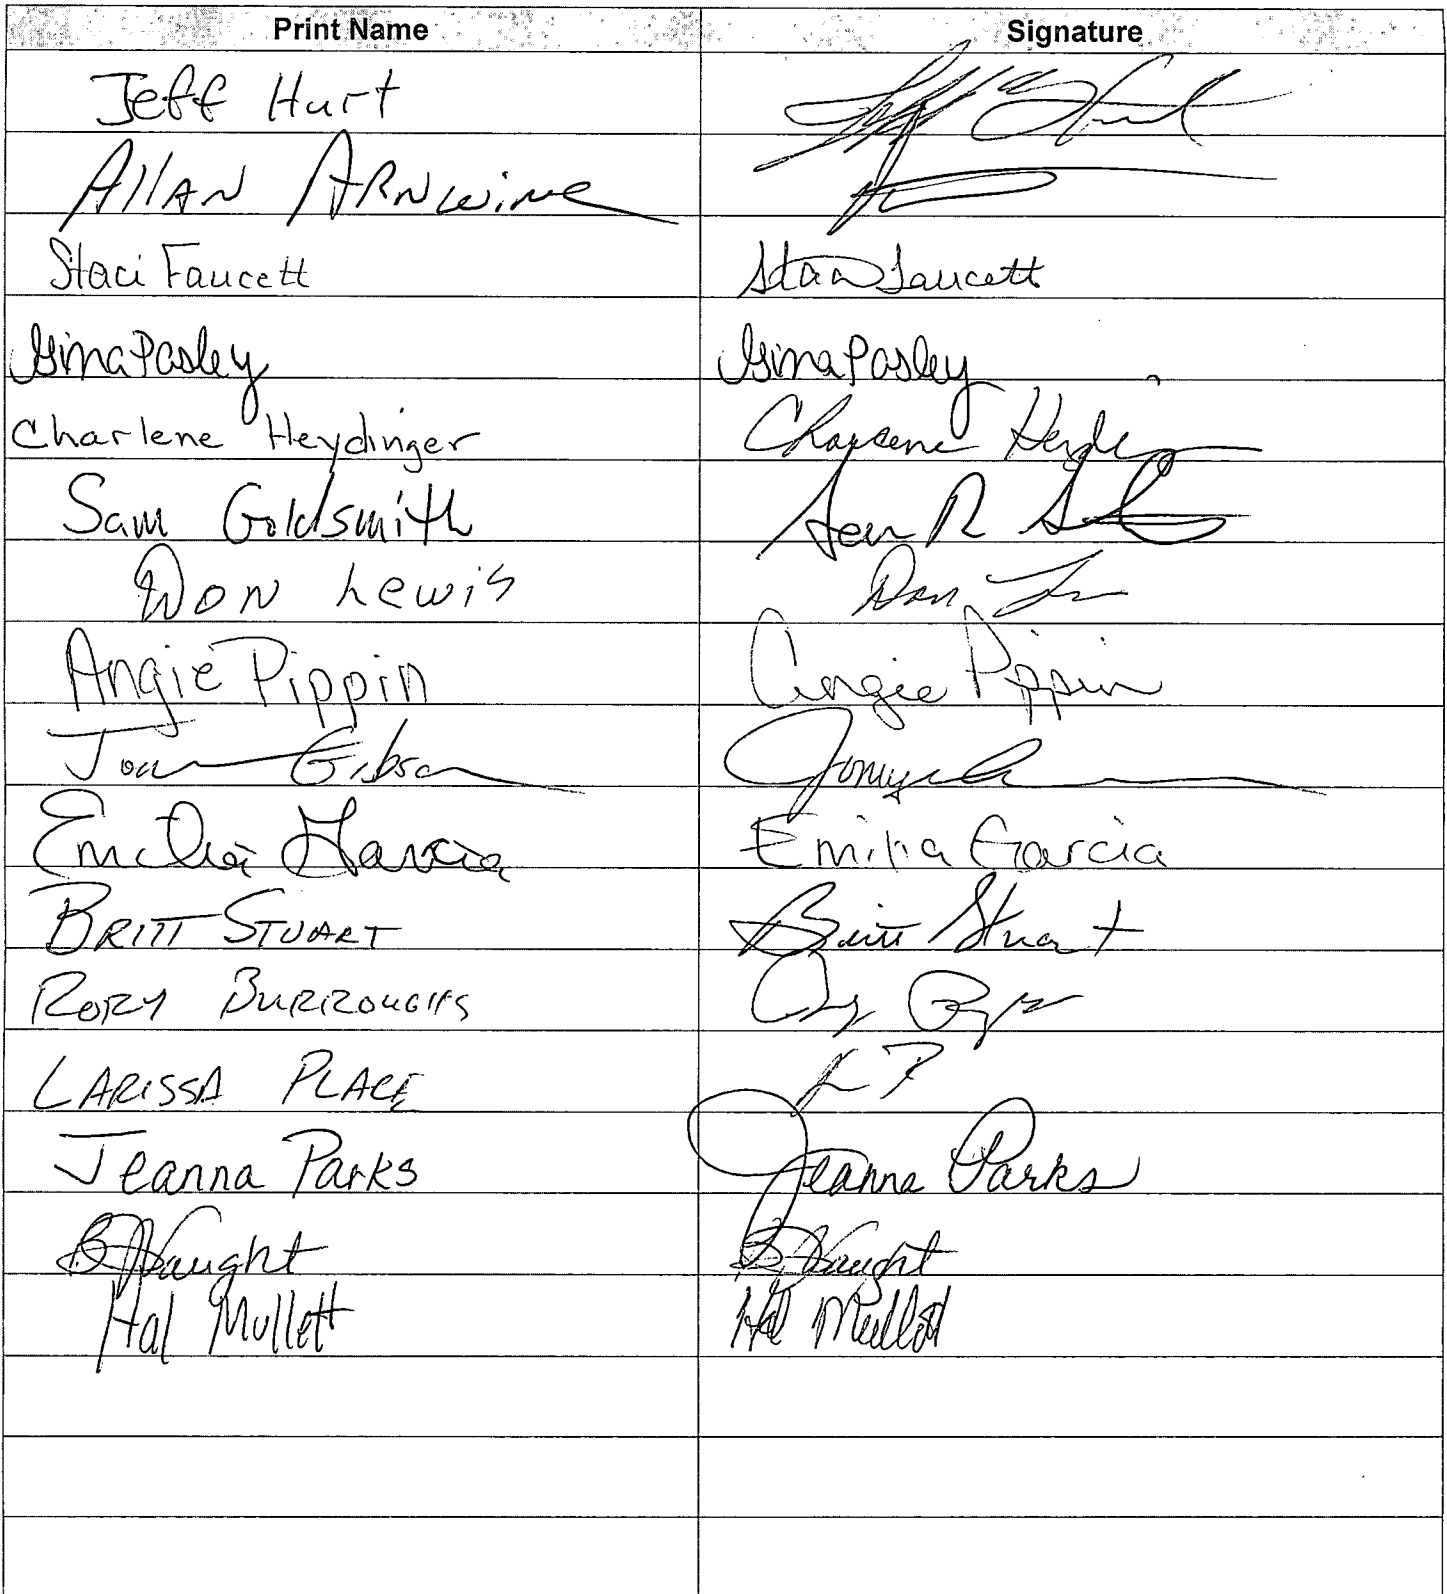 Print Name Signature
Jeff Hurt
Allan Arnwine
Staci Faucett Staci Faucett
Gina Pasley Gina Pasley
Charlene Heydinger Charlene
Sam Goldsmith Sam R
Don Lewis Don
Angie Pippin Angie Pippin
Gibson
Emilia Garcia Emilia Garcia
BRITT STUART Britt Stuart
RORY BURROUGHS
LARISSA PLACE L P
Jeanna Parks Jeanna Parks
B Haught B Haught
Hal Mullett Hal Mullett